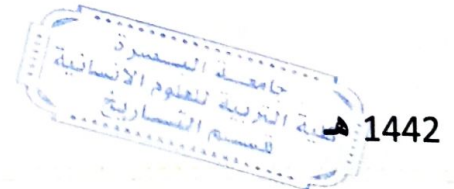 جامعة البصرة
كلية التربية للعلوم الانسانية
قسم التاريخ
1442 هـ